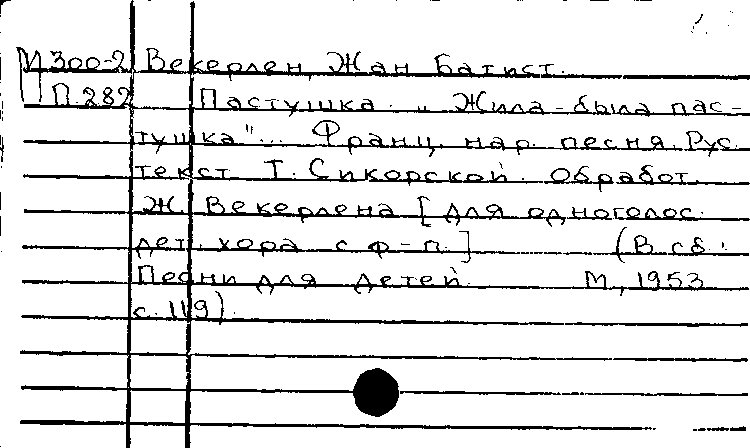 М300-2 Векерлен, Жан Батист.
П282 Пастушка. „Жила-была пас-
тушка"... Франц. нар. песня. Рус.
текст Т. Сикорской. Обработ.
Ж. Векерлена [для одноголос.
дет. хора с ф-п.] (В сб.:
Песни для детей. М., 1953
с. 119).